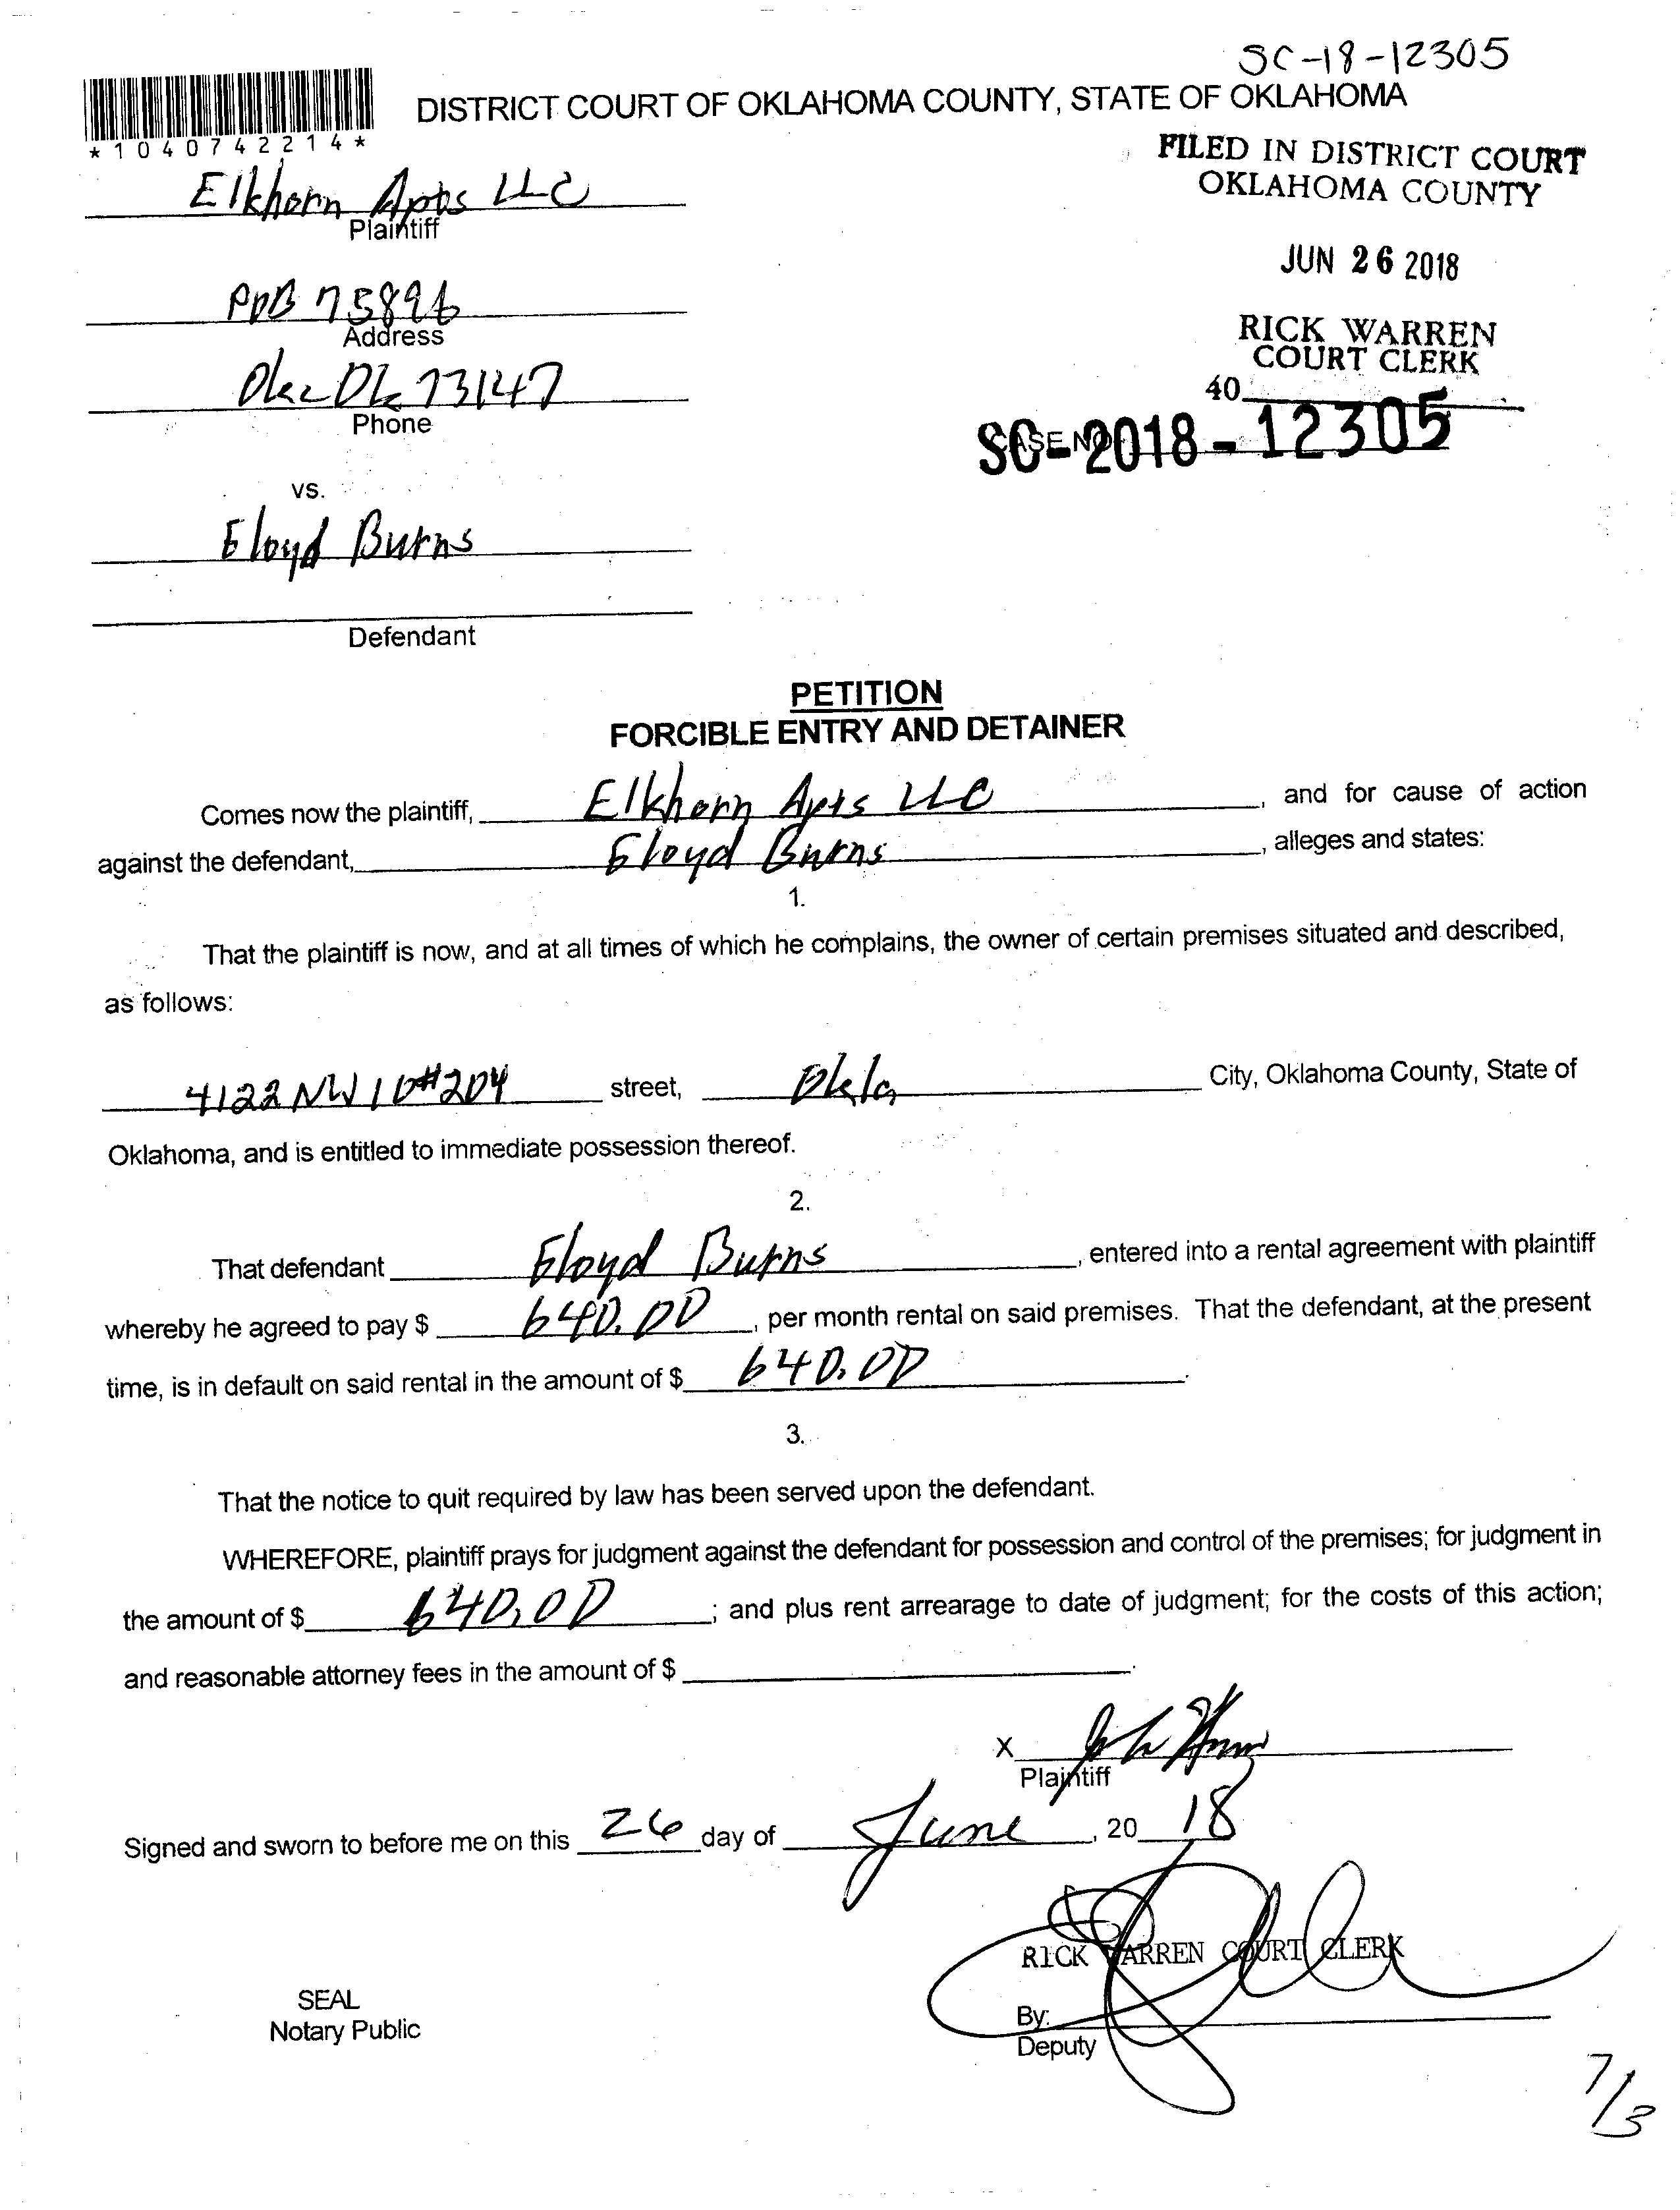 SC-18-12305
DISTRICT COURT OF OKLAHOMA COUNTY, STATE OF OKLAHOMA
*1040742214*
FILED IN DISTRICT COURT
OKLAHOMA COUNTY
Elkhorn Apts LLC
Plaintiff
JUN 26 2018
POB 75896
Address
RICK WARREN
COURT CLERK
40
Okc Ok 73147
Phone
CASE NO.
SC-2018-12305
vs.
Floyd Burns
Defendant
PETITION
FORCIBLE ENTRY AND DETAINER
Comes now the plaintiff, Elkhorn Apts LLC, and for cause of action
against the defendant, Floyd Burns, alleges and states:
1.
That the plaintiff is now, and at all times of which he complains, the owner of certain premises situated and described,
as follows:
4122 NW 10 #204 street, Okla City, Oklahoma County, State of
Oklahoma, and is entitled to immediate possession thereof.
2.
That defendant Floyd Burns, entered into a rental agreement with plaintiff
whereby he agreed to pay $ 640.00, per month rental on said premises. That the defendant, at the present
time, is in default on said rental in the amount of $ 640.00.
3.
That the notice to quit required by law has been served upon the defendant.
WHEREFORE, plaintiff prays for judgment against the defendant for possession and control of the premises; for judgment in
the amount of $ 640.00; and plus rent arrearage to date of judgment; for the costs of this action;
and reasonable attorney fees in the amount of $ .
X
Plaintiff
Signed and sworn to before me on this 26 day of June, 20 18
RICK WARREN COURT CLERK
SEAL
Notary Public
By:
Deputy
7/3